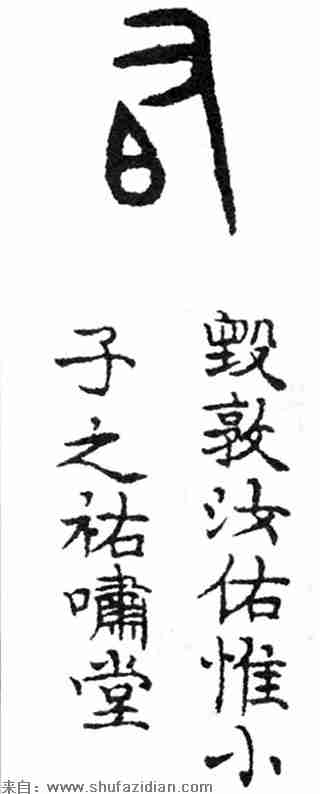 毀敦汝佑惟小
子之祐嘯堂
来自：www.shufazidian.com